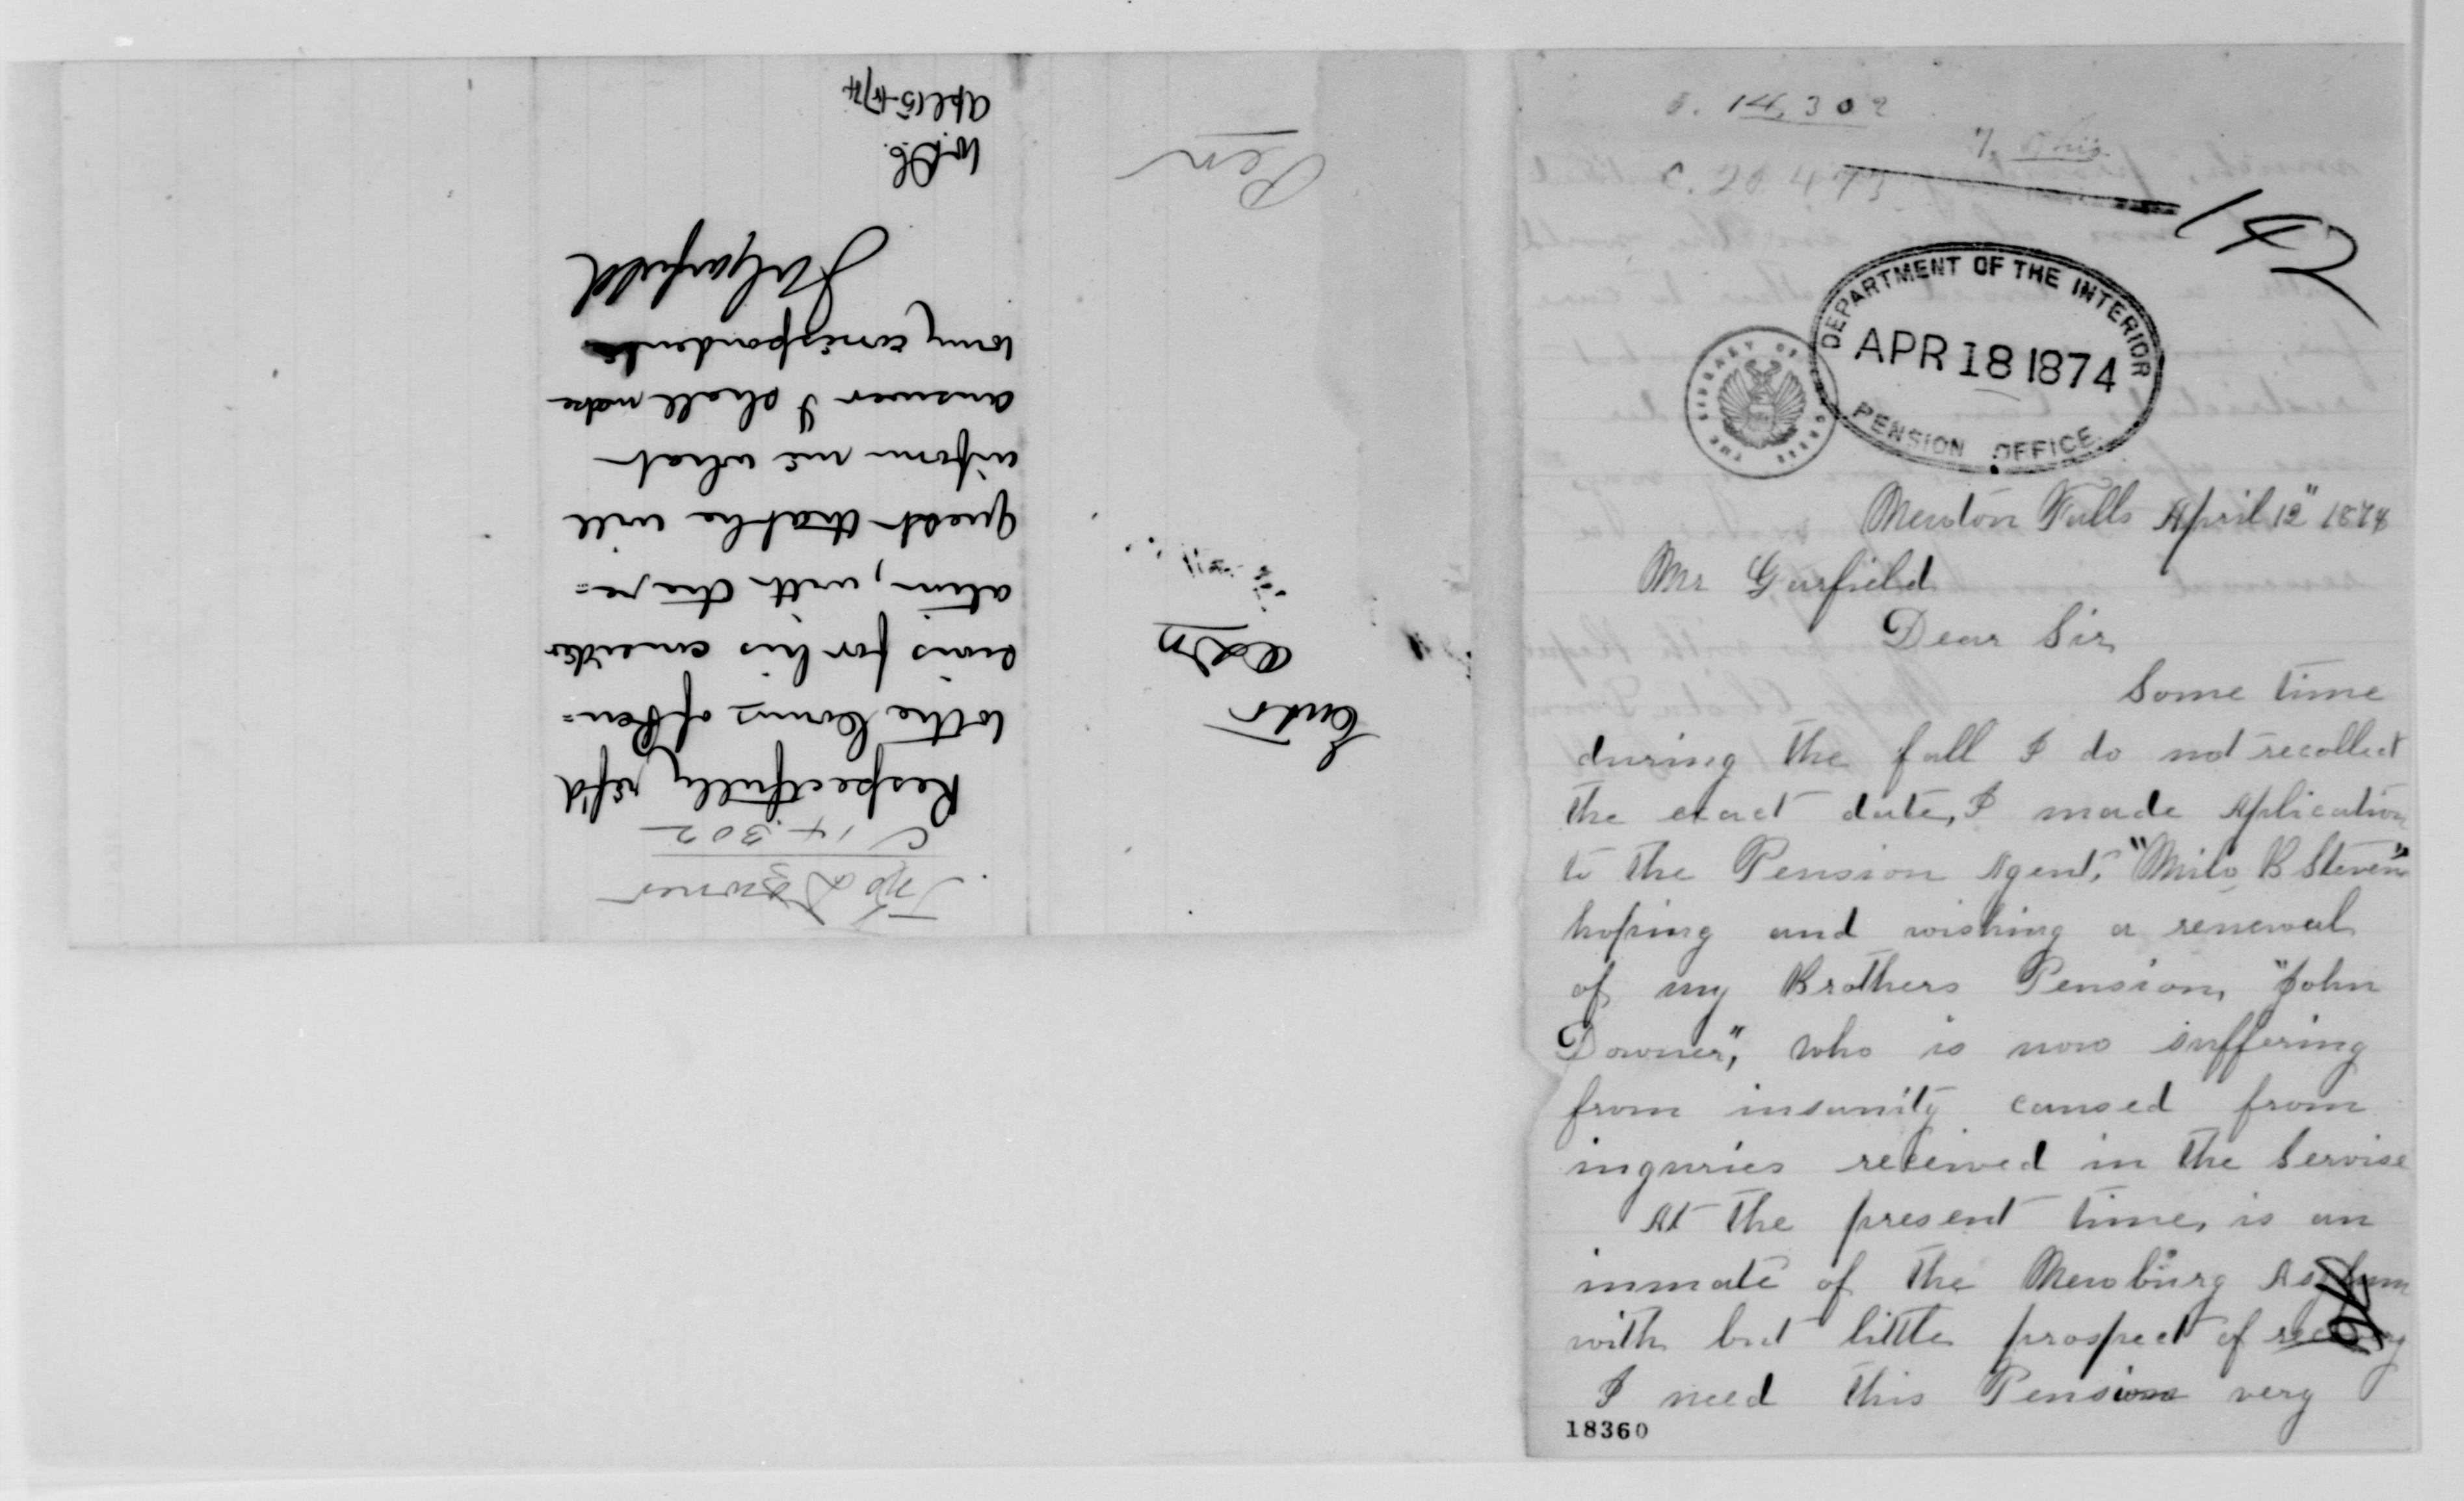 Jno Downer
C 14.302
Respectfully ref'd
to the Comr of Pen=
sions for his consider
ation, with the re=
quest that he will
inform me what
answer I shall make
to my correspondent
J A Garfield
W.D.C.
Apl 15-74
Pen
14,302
7, Ohio
C. 20.473
142
DEPARTMENT OF THE INTERIOR
APR 18 1874
PENSION OFFICE.
THE LIBRARY OF CONGRESS
Newton Falls April 12" 1874
Mr Garfield
Dear Sir,
Some time
during the fall I do not recollect
the exact date, I made Aplication
to the Pension Agent, "Milo B Stevens"
hoping and wishing a renewal
of my Brothers Pension, "John
Downer", who is now suffering
from insanity caused from
inguries received in the Servise
At the present time, is an
inmate of the Newburg Asylum
with but little prospect of recovery
I need this Pension very
18360